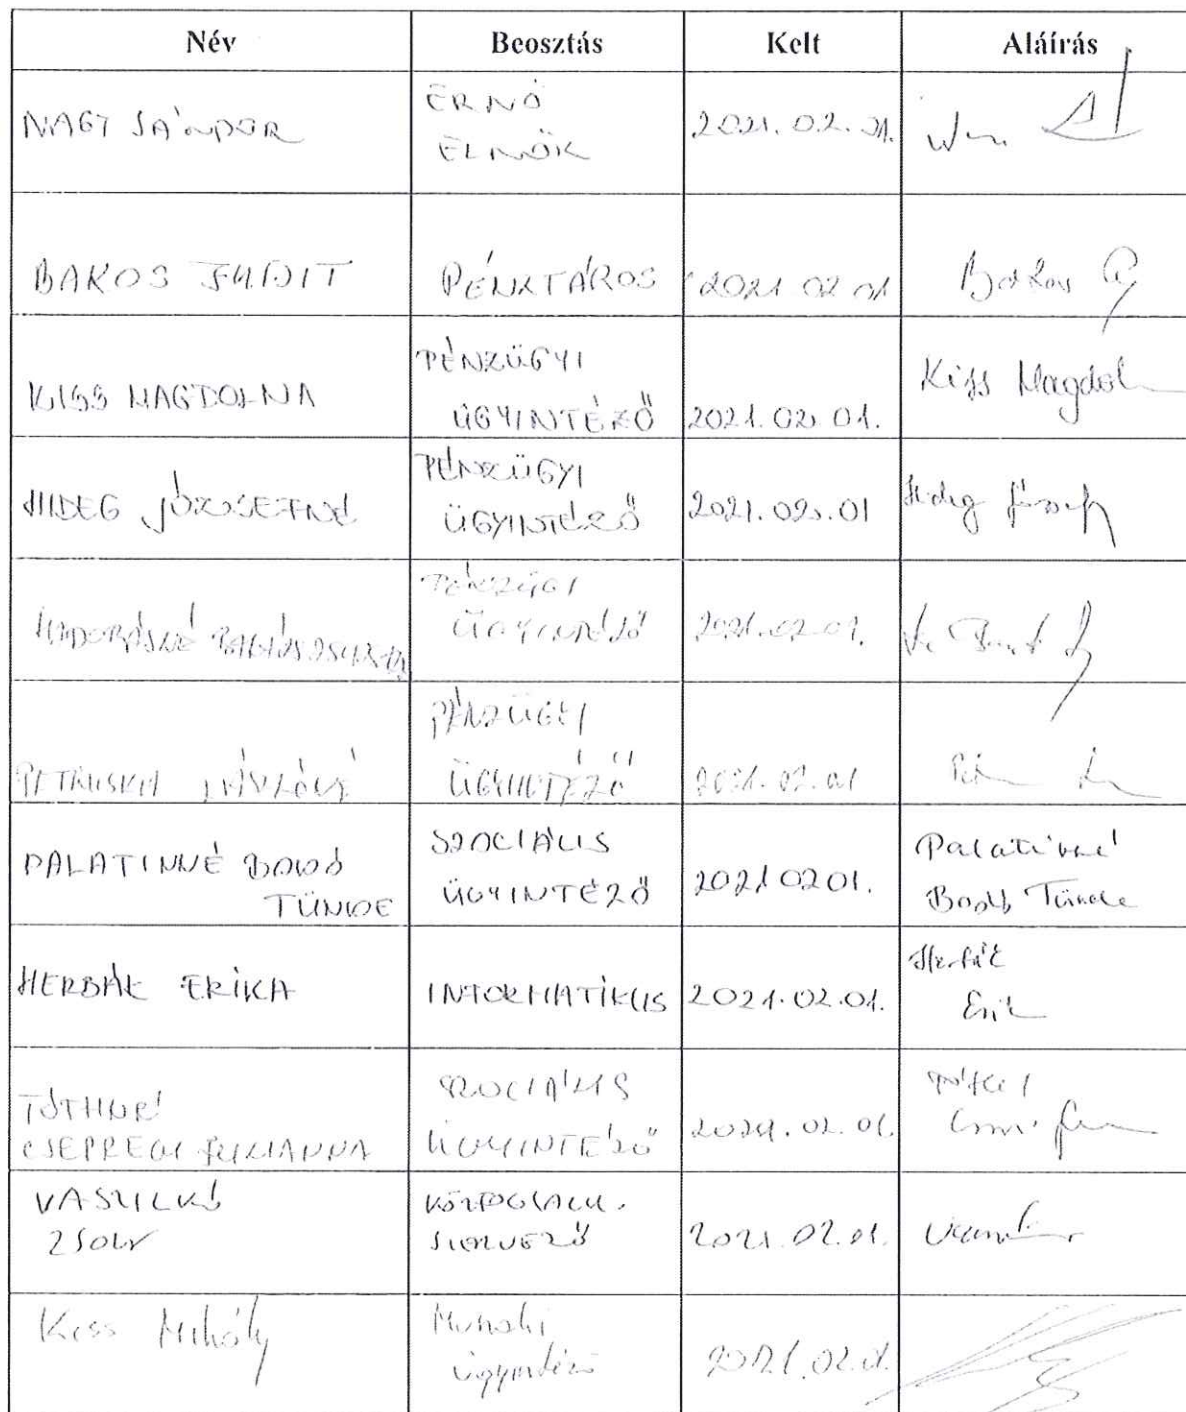 Név Beosztás Kelt Aláírás
NAGY SÁNDOR ERNÖ ELNÖK 2021.02.01.
BAKOS JUDIT PÉNZTÁROS 2021 02 01 Bakos
KISS MAGDOLNA PÉNZÜGYI ÜGYINTÉZŐ 2021.02.01. Kiss Magdol
HIDEG JÓZSEFNÉ PÉNZÜGYI ÜGYINTÉZŐ 2021.02.01 Hideg József
PÉNZÜGYI ÜGYINTÉZŐ 2021.02.01.
PETRUSKA LÁSZLÓNÉ PÉNZÜGYI ÜGYINTÉZŐ 2021.02.01
PALATINNÉ BODÓ TÜNDE SZOCIÁLIS ÜGYINTÉZŐ 2021 02 01. Palatinné Bodó Tünde
HERBÁK ERIKA INFORMATIKUS 2021.02.01. Herbák Erik
TÓTHNÉ CSEPREGI JULIANNA SZOCIÁLIS ÜGYINTÉZŐ 2021.02.01.
VASZILKÓ ZSOLT KÖZFOGLALK. SZERVEZŐ 2021.02.01.
Kiss Mihály Munkaügyi ügyintéző 2021.02.01.